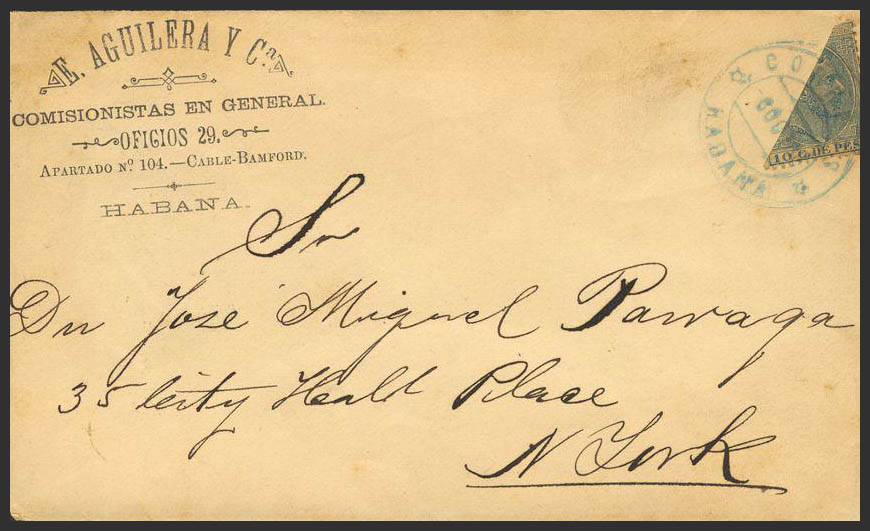 E. AGUILERA Y Cª
COMISIONISTAS EN GENERAL.
OFICIOS 29.
APARTADO Nº 104.—CABLE-BAMFORD.
HABANA.
HABANA
10 C. DE PES
Sr
Dn José Miguel Parraga
35 City Hall Place
N York